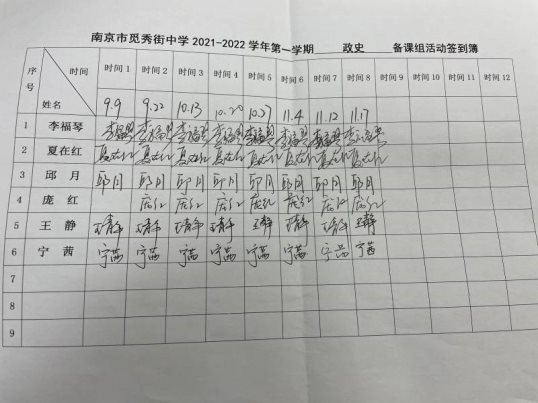 南京市觅秀街中学 2021-2022 学年第一学期 政史 备课组活动签到簿
序号 时间 姓名 时间 1 时间 2 时间 3 时间 4 时间 5 时间 6 时间 7 时间 8 时间 9 时间 10 时间 11 时间 12
9.9 9.22 10.13 10.20 10.27 11.4 11.12 11.17
1 李福琴 李福琴 李福琴 李福琴 李福琴 李福琴 李福琴 李福琴 李福琴
2 夏在红 夏在红 夏在红 夏在红 夏在红 夏在红 夏在红 夏在红 夏在红
3 邱月 邱月 邱月 邱月 邱月 邱月 邱月 邱月 邱月
4 庞红 庞红 庞红 庞红 庞红 庞红 庞红 庞红
5 王静 王静 王静 王静 王静 王静 王静 王静 王静
6 宁茜 宁茜 宁茜 宁茜 宁茜 宁茜 宁茜 宁茜 宁茜
7
8
9